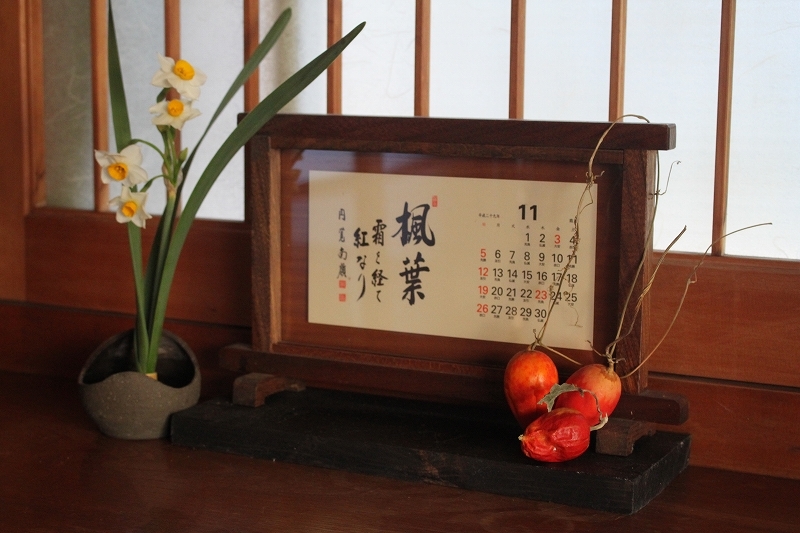 楓葉
霜を経て
紅なり
円覚南嶺
平成二十九年
11
1 2 3 4
5 6 7 8 9 10 11
12 13 14 15 16 17 18
19 20 21 22 23 24 25
26 27 28 29 30